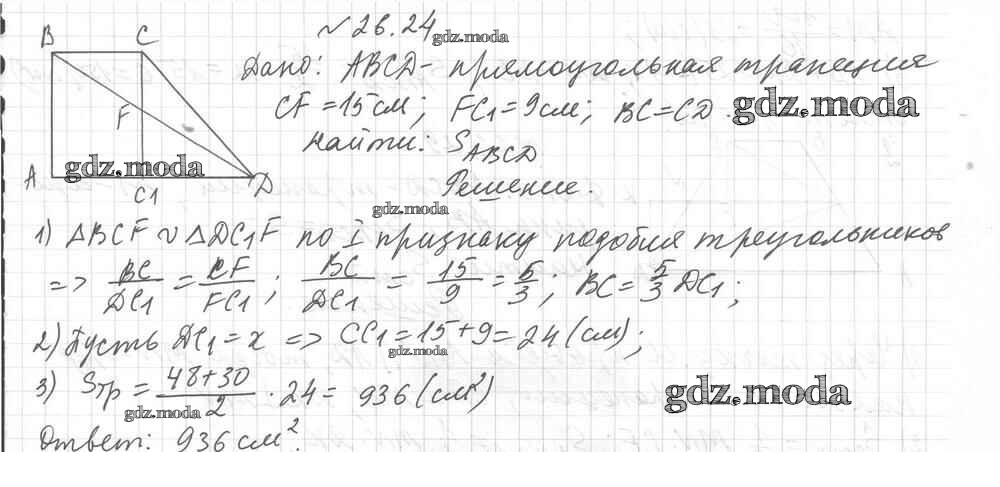 № 26.24
gdz.moda
B C
Дано: ABCD - прямоугольная трапеция
CF = 15 см; FC1 = 9 см; BC = CD.
gdz.moda
F
Найти: S ABCD
gdz.moda
A C1 D
Решение.
gdz.moda
1) ΔBCF ∾ ΔDC1F по I признаку подобия треугольников
=> BC/DC1 = CF/FC1; BC/DC1 = 15/9 = 5/3; BC = 5/3 DC1;
2) Пусть DC1 = x => CC1 = 15 + 9 = 24 (см);
gdz.moda
3) Sтр = (48+30)/2 · 24 = 936 (см²)
gdz.moda
gdz.moda
Ответ: 936 см².